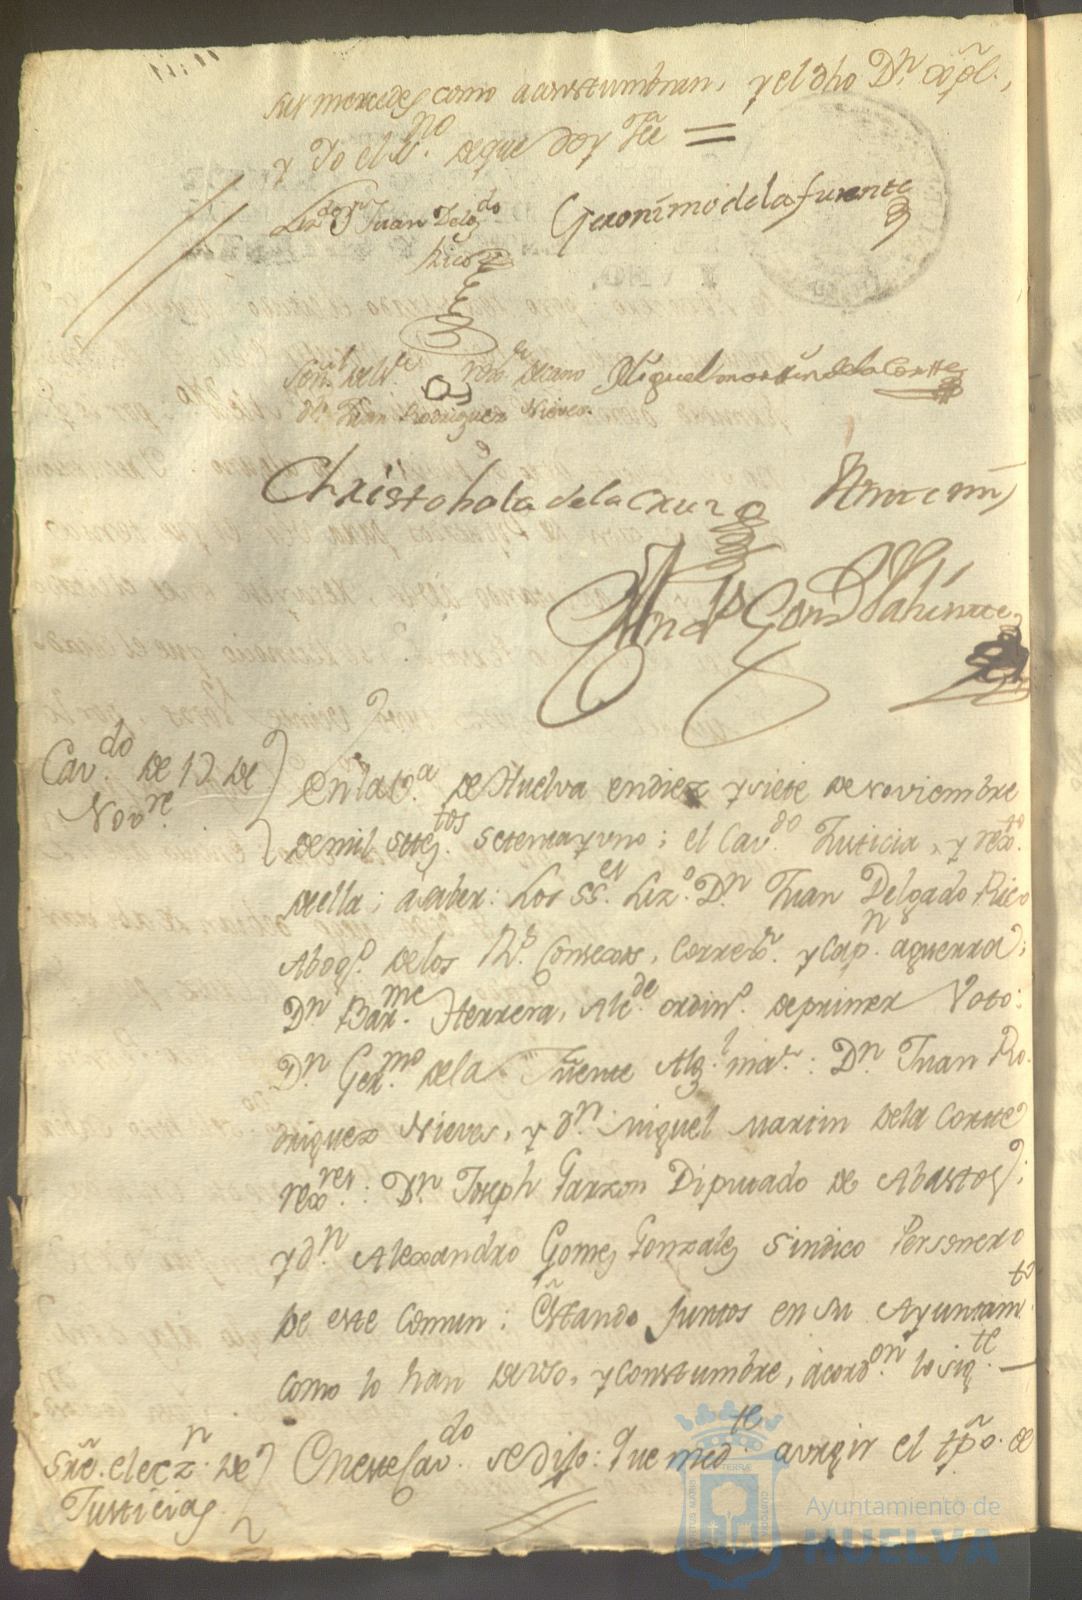 sus mercedes como acostumbran, y el dho Dn. Xptl.,
y Yo el ssno. de que doy fee =
Lizdo. Dn Juan Delgdo
Rico
Geronimo de la fuente
Señl de Sr. rexr. decano
Dn. Juan Rodriguez Nieves
Miguel martin de la Corte
Christobal de la Cruz
Ante mi
Cavdo. de 17 de
Novre.
En la va. de Huelva en diez y siete de noviembre
de mil setezs.tos setenta y uno; el Cavdo. Justicia, y rexto.
de ella; a saber: Los SSes. Lizo. Dn Juan Delgado Rico
Abogo. de los Rs. Consexos, Correxr. y Capn. aguerra;
Dn Barme. Herrera, Alcde. ordino. de primer Voto:
Dn Germo. de la Fuente Algl. mar.: Dn Juan Ro-
driguez Nieves, y dn. miguel martin de la Corte
rexres.: Dn Joseph Garzon Diputado de Abastos;
y dn. Alexandro Gomez Gonzalez Sindico Personero
de este Comun: Estando juntos en su Ayuntamto.
como lo han de uso, y constumbre, acordon. lo sigte. —
Sre. eleczn. de
Justicias
En este Cavdo. se dijo: Que medte. a urgir el tpo. de
Ayuntamiento de
HUELVA